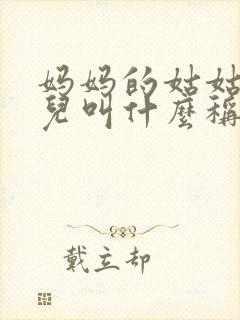 妈妈的姑姑
兒叫什麼稱
戴立却